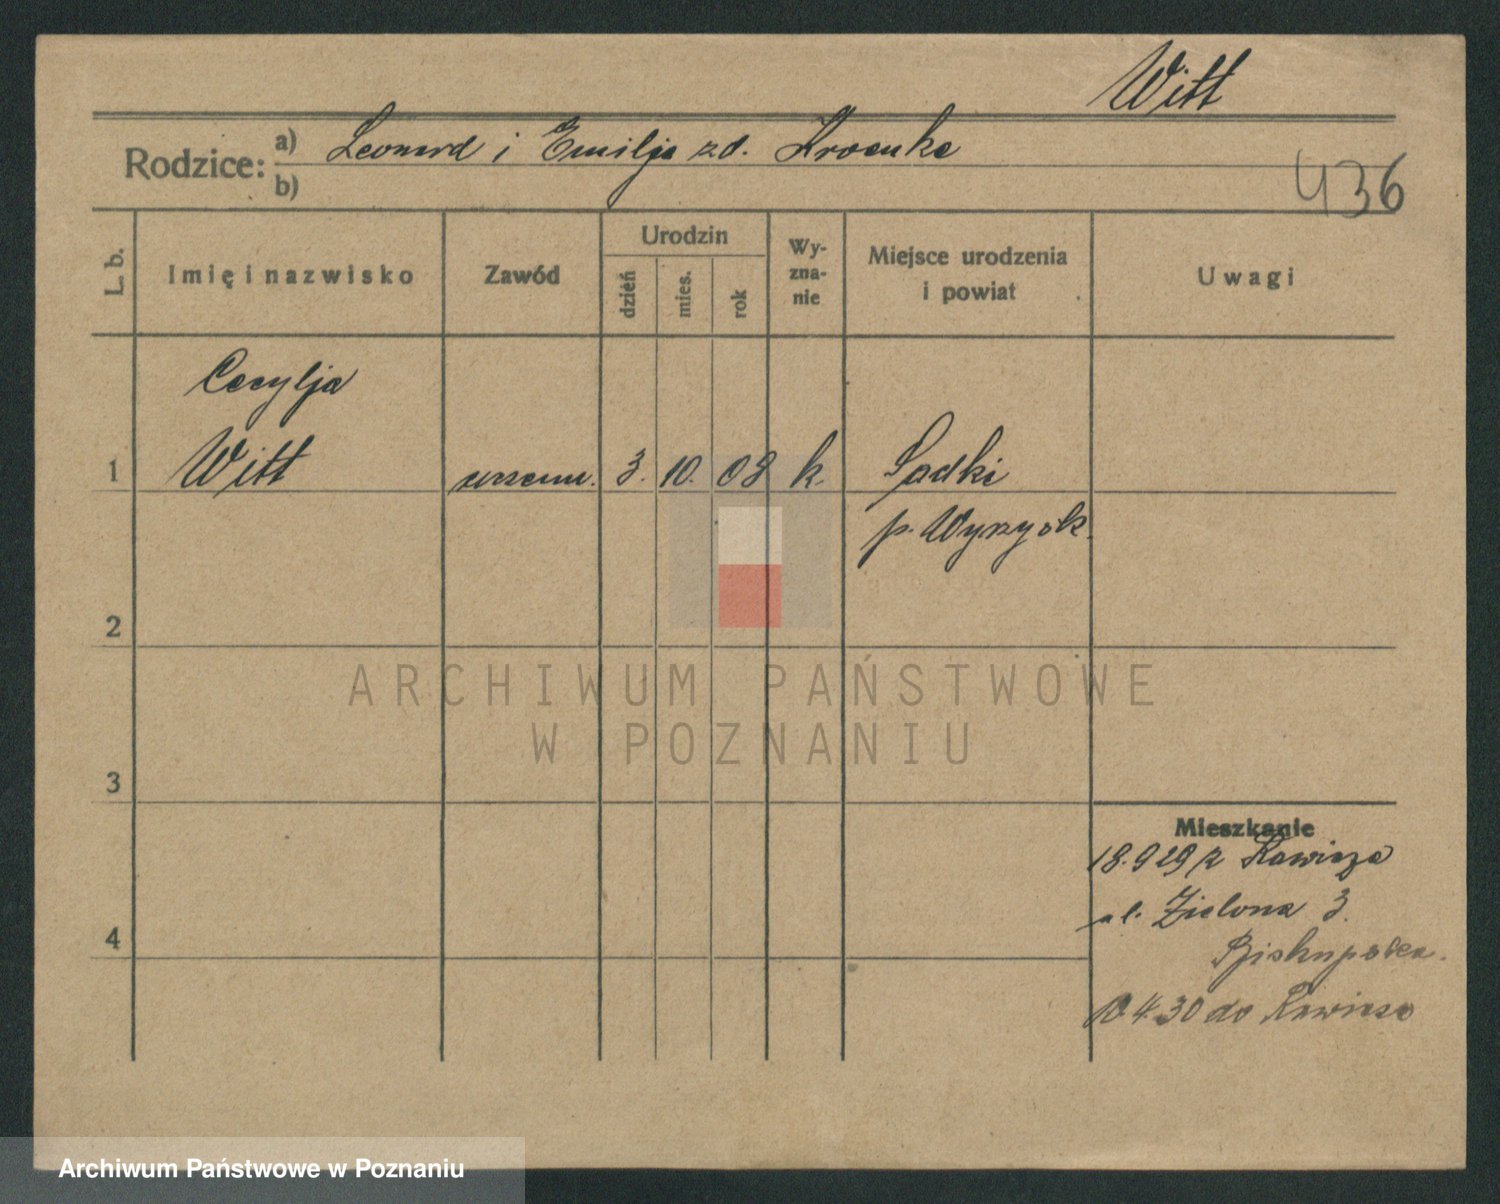 Witt
Rodzice: a) Leonard i Emilja zd. Kroenke
b)
436
L. b.
Imię i nazwisko
Zawód
Urodzin
dzień
mies.
rok
Wy-
zna-
nie
Miejsce urodzenia
i powiat
Uwagi
Cecylja
1 Witt 3. 10. 08 k. Sadki
p. Wyrzysk.
2
ARCHIWUM PAŃSTWOWE
W POZNANIU
3
Mieszkanie
18.9 29 z Rawicza
ul. Zielona 3.
Biskupska.
10 4.30 do Rawicza
4
Archiwum Państwowe w Poznaniu